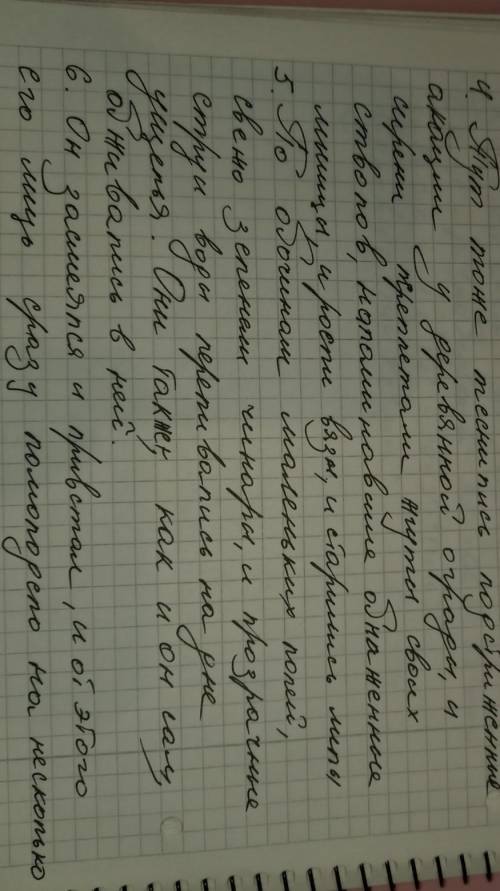 4. Тут тоже теснились подстриженные
акации у деревянной ограды, и
сирени трепетали жгуты своих
стволов, напоминавшие обнаженные
мышцы, и росли вязы, и старились липы
5. По обочинам маленьких полей,
свежо зеленели чинары, и прозрачные
струи воды переливались на дне
ущелья. Они также, как и он сам,
отживались в ней.
6. Он засмеялся и привстал, и от этого
его лицо сразу помолодело на несколько